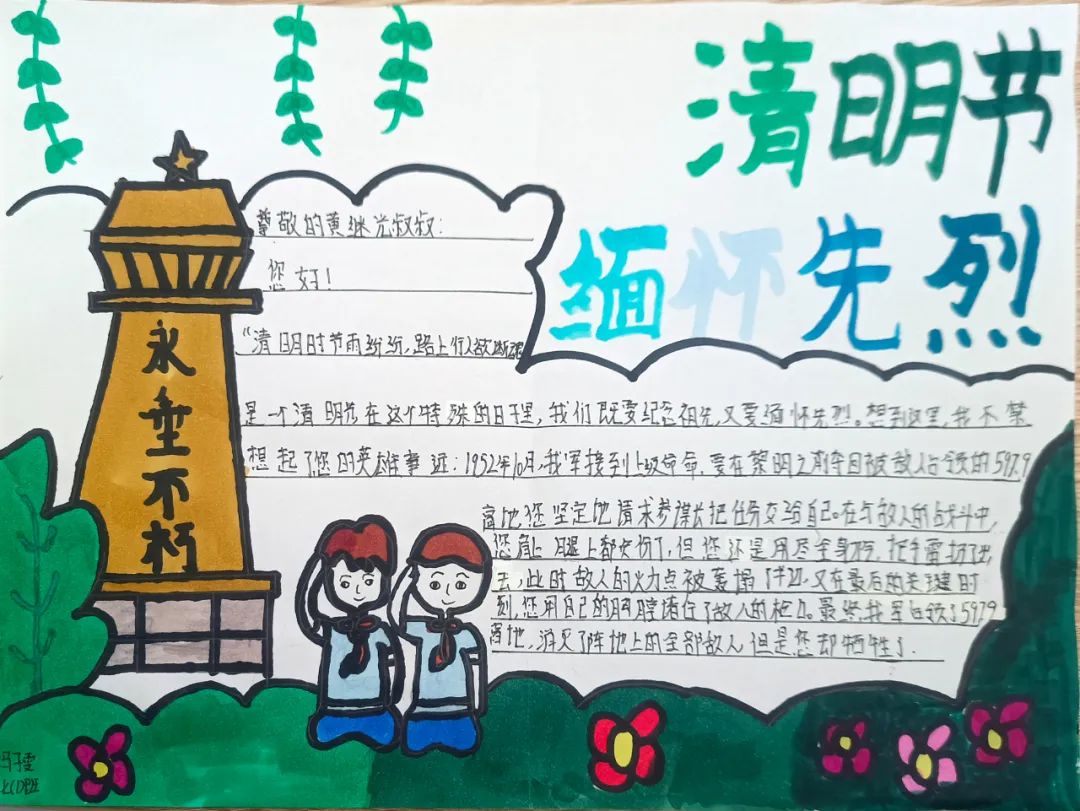 清明节
缅怀先烈
永垂不朽
尊敬的黄继光叔叔:
您好!
“清明时节雨纷纷,路上行人欲断魂
是一个清明节在这个特殊的日子里,我们既要纪念祖先,又要缅怀先烈。想到这里,我不禁
想起了您的英雄事迹:1952年10月,我军接到上级命令,要在黎明之前夺回被敌人占领的597.9
高地,您坚定地请求参谋长把任务交给自己。在与敌人的战斗中,
您肩上腿上都受伤了,但您还是用尽全身,把手雷扔了出
去,此时敌人的火力点被轰塌了半边,又在最后的关键时
刻,您用自己的胸膛堵住了敌人的枪口。最终,我军占领了597.9
高地,消灭了阵地上的全部敌人,但是您却牺牲了.